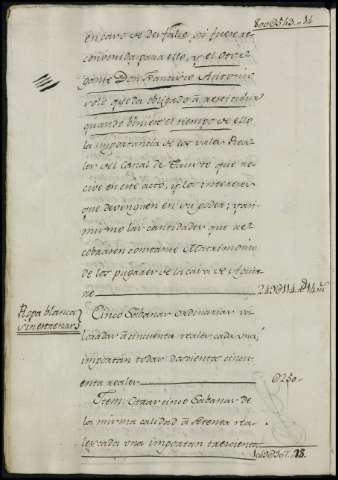 en caso se desfalco si fuere re-
convenida para ello, y el otor-
gante Don Francisco Antonio
solo queda obligado à restituhir
quando biniere el tiempo de ello
la importancia de los vales Rea-
les del Canal de que re-
cive en este acto, y los intereses
que devenguen en su poder; y an-
mismo las cantidades que se
cobraren constante Matrimonio
de los pagares de la casa de
na
Ropa blanca
sin estrenar
Cinco Sabanas ordinarias va-
luadas à cinquenta reales cada una,
importan todas doscientos cincu-
enta reales 0250"
Item: Otras cinco Sabanas de
la misma calidad à setenta rea-
les cada una importan trescientos